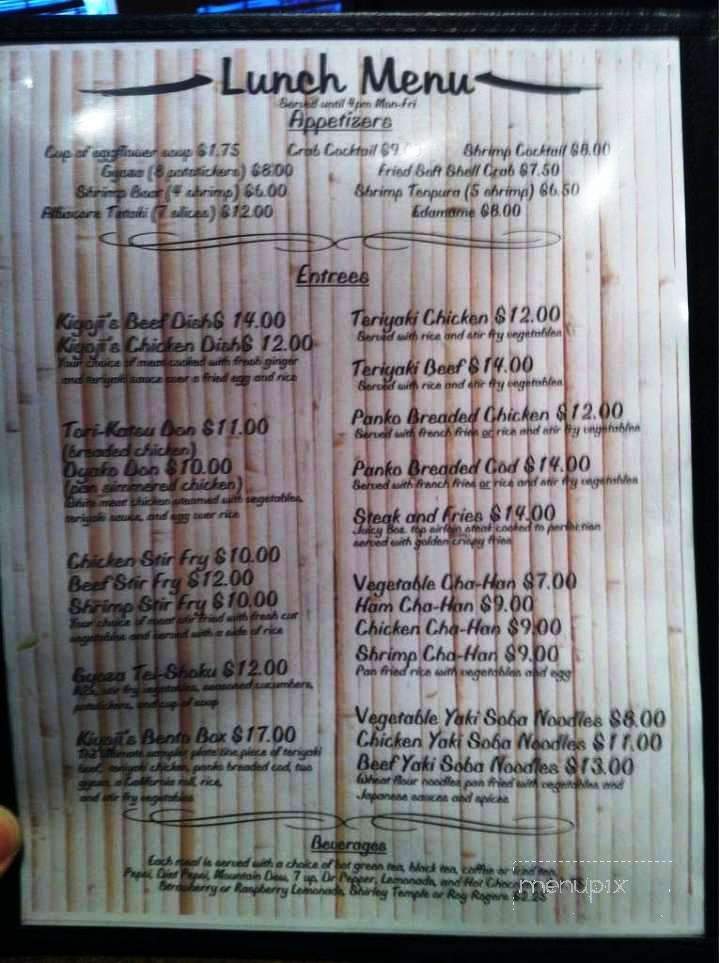 Lunch Menu
Served until 4pm Mon-Fri
Appetizers
Cup of eggflower soup $1.75
Crab Cocktail
Shrimp Cocktail $8.00
Gyoza (8 potstickers) $8.00
Fried Soft Shell Crab $7.50
Shrimp Boar (4 shrimp) $6.00
Shrimp Tenpura (5 shrimp) $6.50
Albacore Tataki (7 slices) $12.00
Edamame $8.00
Entrees
Kiyoji's Beef Dish$ 14.00
Kiyoji's Chicken Dish$ 12.00
Your choice of meat cooked with fresh ginger
and teriyaki sauce over a fried egg and rice
Tori-Katsu Don $11.00
(breaded chicken)
Oyako Don $10.00
(pan simmered chicken)
White meat chicken steamed with vegetables,
teriyaki sauce, and egg over rice
Chicken Stir Fry $10.00
Beef Stir Fry $12.00
Shrimp Stir Fry $10.00
Your choice of meat stir fried with fresh cut
vegetables and served with a side of rice
Gyoza Tei-Shoku $12.00
Rice, stir fry vegetables, seasoned cucumbers,
potstickers, and cup of soup
Kiyoji's Bento Box $17.00
The ultimate sampler plate! One piece of teriyaki
beef, teriyaki chicken, panko breaded cod, two
gyoza, a California roll, rice,
and stir fry vegetables
Teriyaki Chicken $12.00
Served with rice and stir fry vegetables
Teriyaki Beef $14.00
Served with rice and stir fry vegetables
Panko Breaded Chicken $12.00
Served with french fries or rice and stir fry vegetables
Panko Breaded Cod $14.00
Served with french fries or rice and stir fry vegetables
Steak and Fries $14.00
Juicy 8oz. top sirloin steak cooked to perfection
served with golden crispy fries
Vegetable Cha-Han $7.00
Ham Cha-Han $9.00
Chicken Cha-Han $9.00
Shrimp Cha-Han $9.00
Pan fried rice with vegetables and egg
Vegetable Yaki Soba Noodles $8.00
Chicken Yaki Soba Noodles $11.00
Beef Yaki Soba Noodles $13.00
Wheat flour noodles pan fried with vegetables and
Japanese sauces and spices
Beverages
Each meal is served with a choice of hot green tea, black tea, coffee or iced tea.
Pepsi, Diet Pepsi, Mountain Dew, 7 up, Dr Pepper, Lemonade, and Hot Chocolate
Strawberry or Raspberry Lemonade, Shirley Temple or Roy Rogers $2.25
menupix